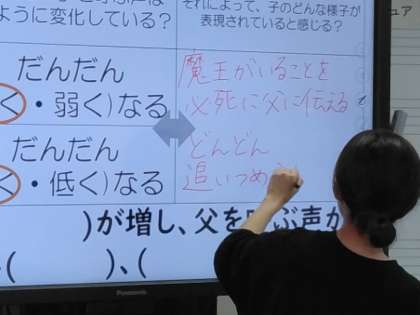 ように変化している?
それによって、子のどんな様子が
表現されていると感じる?
だんだん
く・弱く)なる
魔王がいることを
必死に父に伝える
だんだん
く・低く)なる
どんどん
追いつめ
)が増し、父を
ぶ声が
(      )、(
Panasonic